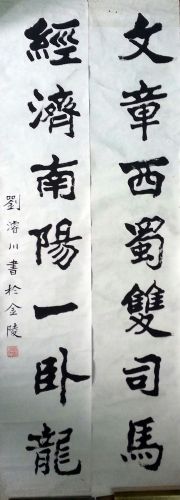 文章西蜀雙司馬
經濟南陽一臥龍
劉濬川書於金陵